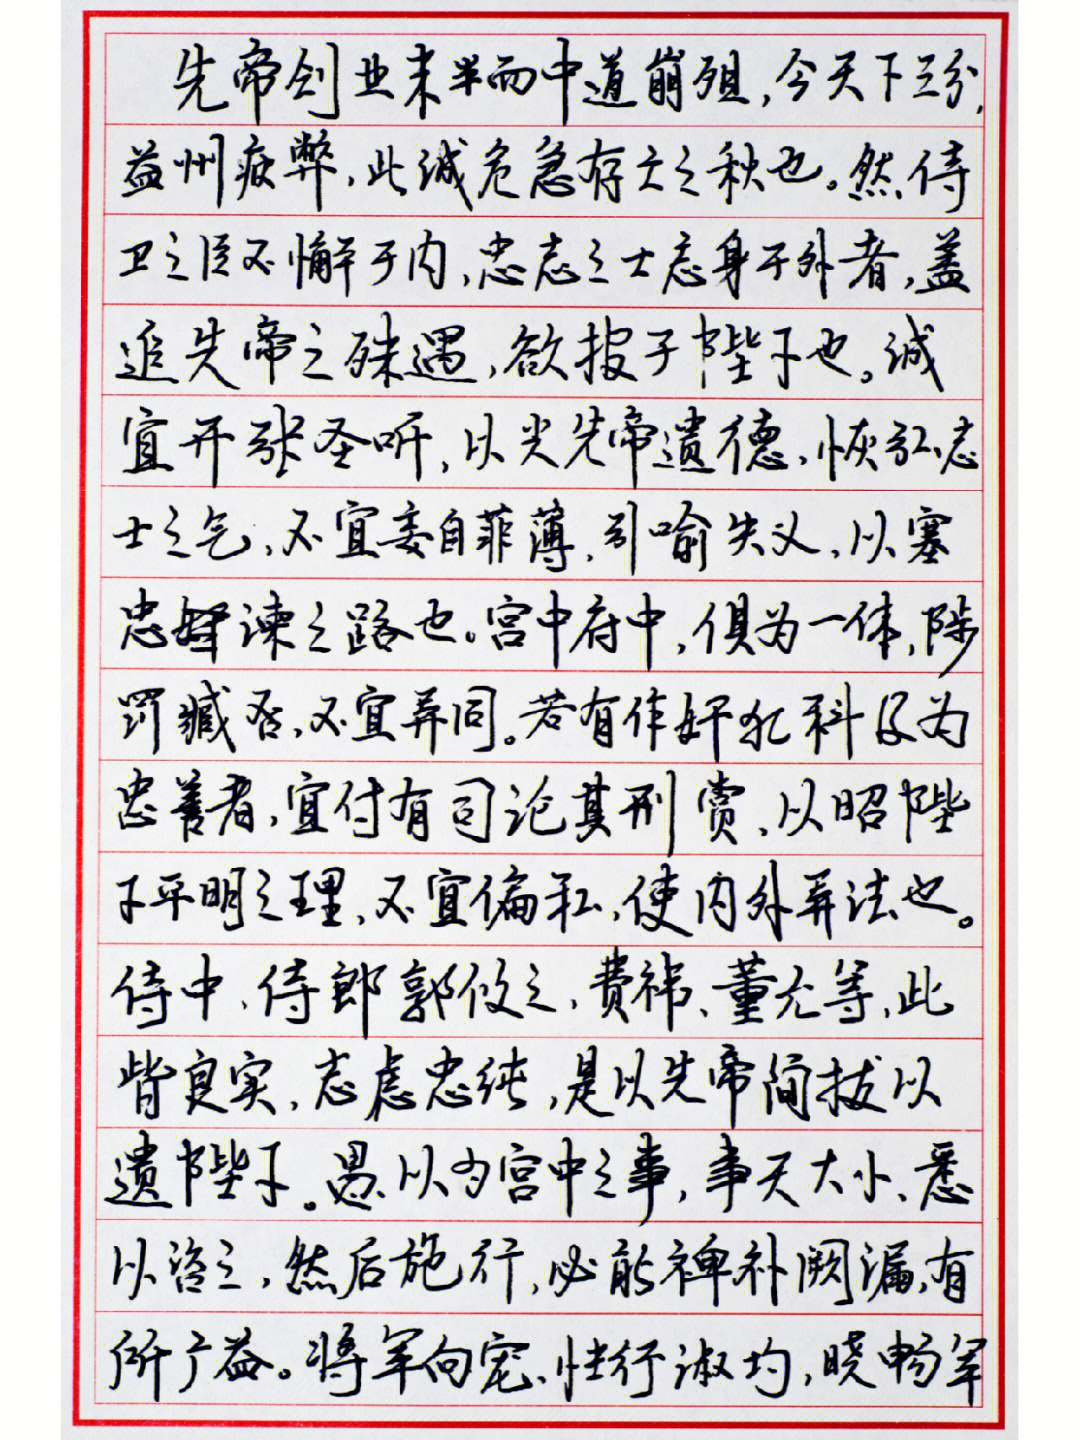 先帝创业未半而中道崩殂，今天下三分，
益州疲弊，此诚危急存亡之秋也。然侍
卫之臣不懈于内，忠志之士忘身于外者，盖
追先帝之殊遇，欲报于陛下也。诚
宜开张圣听，以光先帝遗德，恢弘志
士之气，不宜妄自菲薄，引喻失义，以塞
忠谏之路也。宫中府中，俱为一体，陟
罚臧否，不宜异同。若有作奸犯科及为
忠善者，宜付有司论其刑赏，以昭陛
下平明之理，不宜偏私，使内外异法也。
侍中、侍郎郭攸之、费祎、董允等，此
皆良实，志虑忠纯，是以先帝简拔以
遗陛下。愚以为宫中之事，事无大小、悉
以咨之，然后施行，必能裨补阙漏，有
所广益。将军向宠、性行淑均，晓畅军